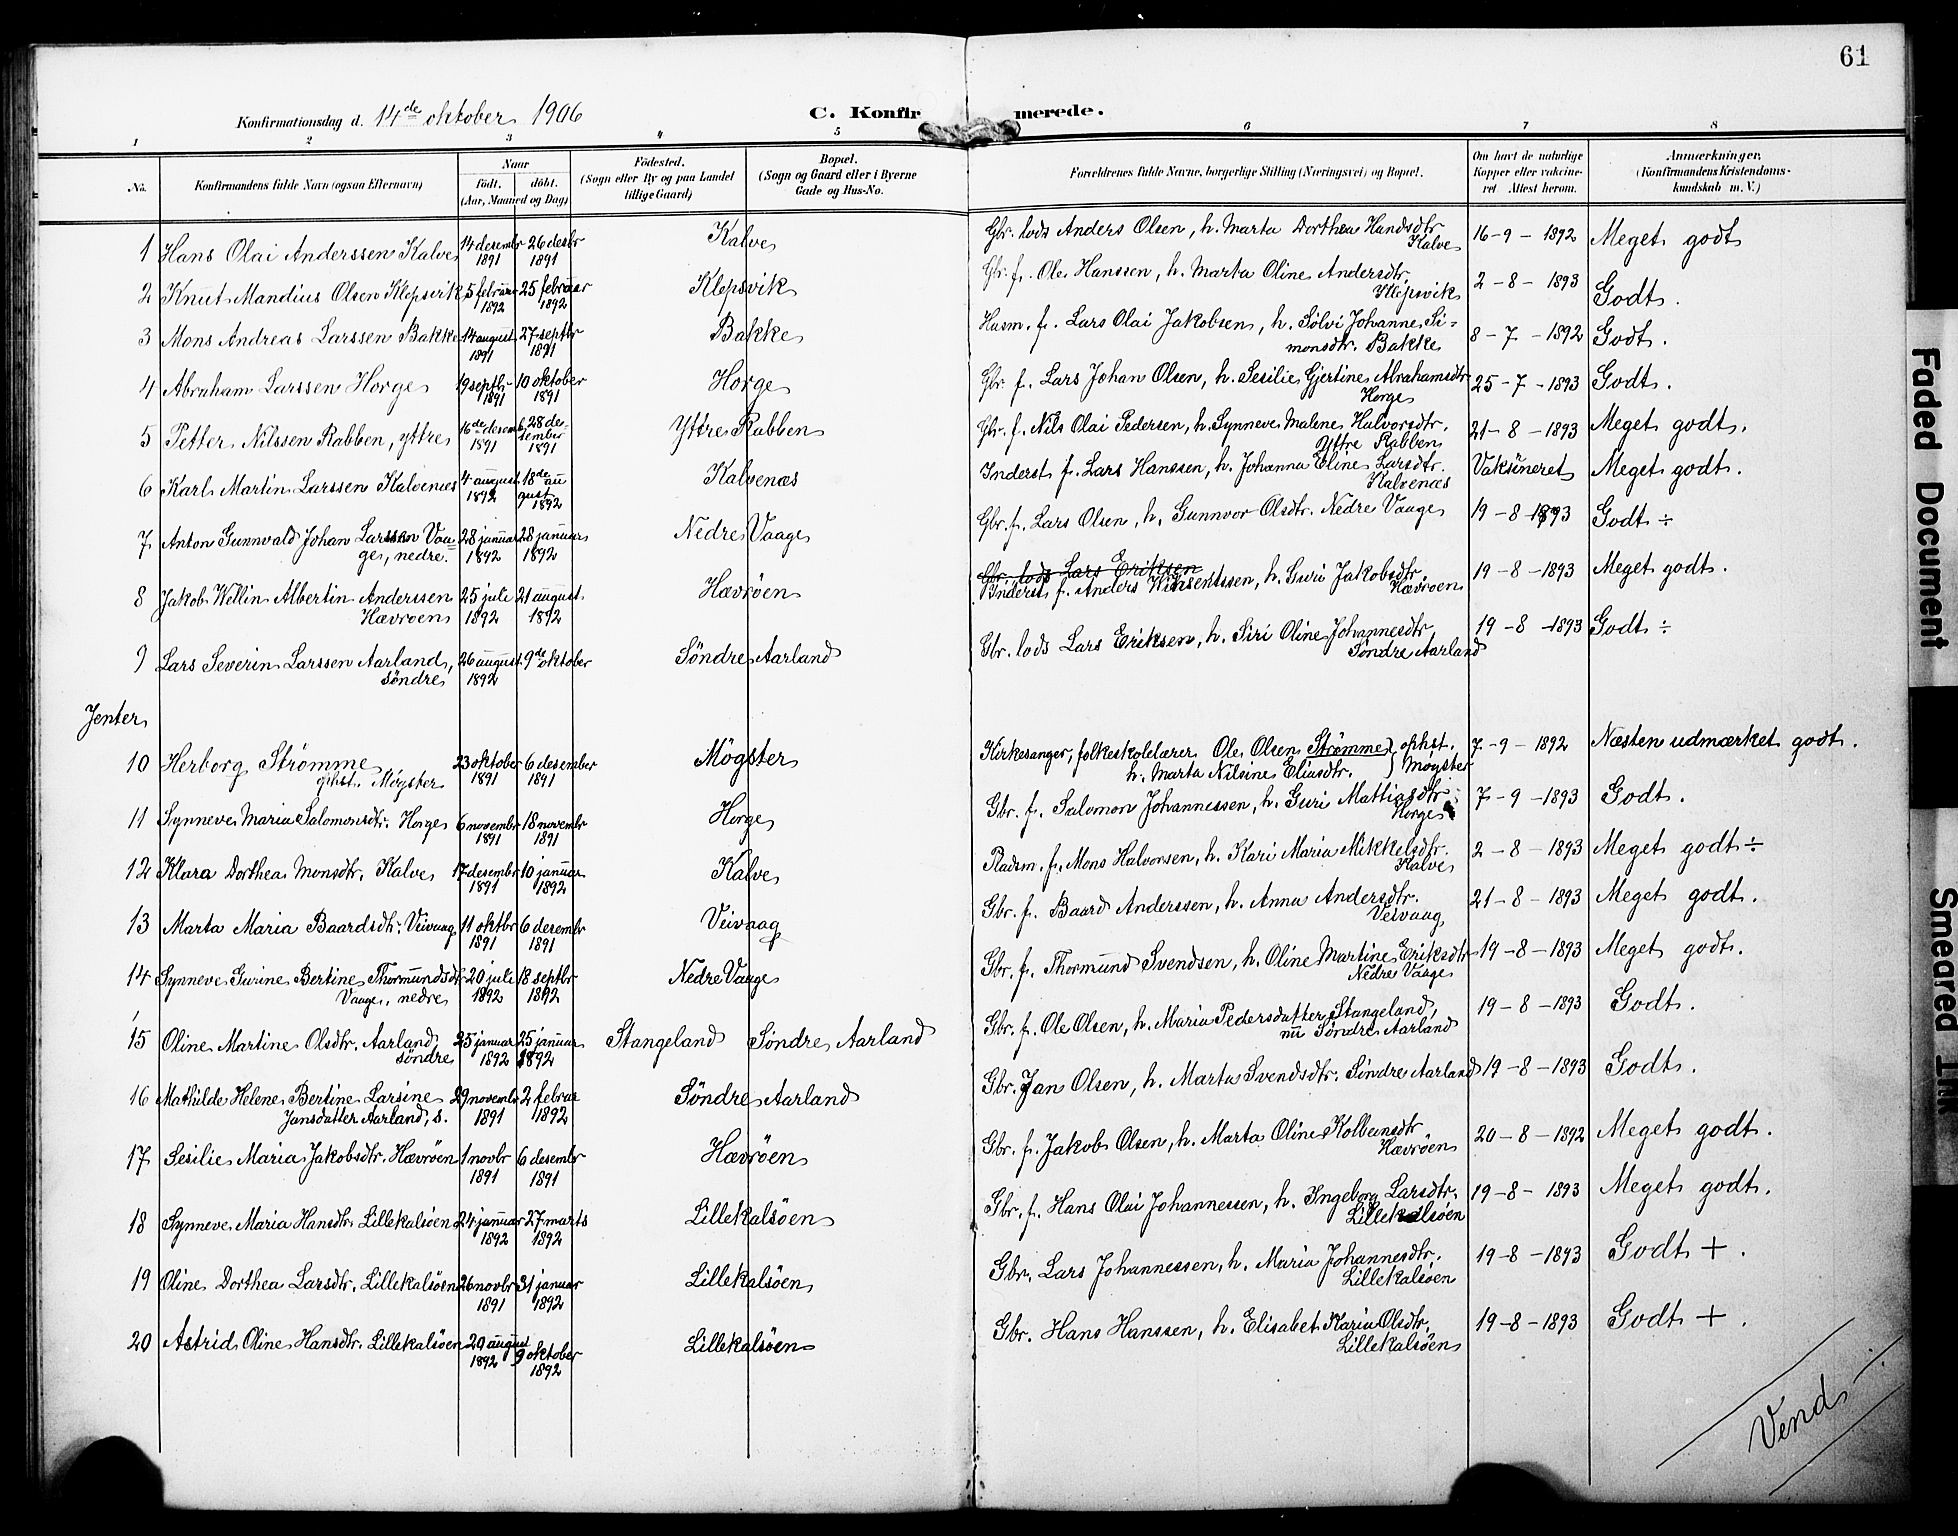 61
Konfirmationsdag d. 14de oktober 1906 C. Konfirmerede.
1 2 3 4 5 6 7 8
No. Konfirmandens fulde Navn (ogsaa Efternavn)
Naar
födt. döbt.
(Aar, Maaned og Dag)
Födested.
(Sogn eller By og paa Landet
tillige Gaard)
Bopæl.
(Sogn og Gaard eller i Byerne
Gade og Hus-No.
Forældrenes fulde Navne, borgerlige Stilling (Næringsvei) og Bopæl.
Om havt de naturlige
Kopper eller vaccine-
ret Attest herom.
Anmærkninger.
(Konfirmandens Kristendoms-
kundskab m. V.)
1 Hans Olai Anderssen Kalve 14 desembr 1891 26 desbr 1891 Kalve Gbr. lods Anders Olsen, h. Marta Dorthea Handsdtr Kalve 16-9-1892 Meget godt
2 Knut Mandius Olsen Klepsvik 5 februar 1892 25 februar 1892 Klepsvik Gbr. f. Ole Hanssen, h. Marta Oline Andersdtr. Klepsvik 2-8-1893 Godt.
3 Mons Andreas Larssen Bakke 14 august 1891 27 septbr 1891 Bakke Husm. f. Lars Olai Jakobsen, h. Sölvi Johanne Si-
monsdtr. Bakke 8-7-1892 Godt.
4 Abraham Larssen Horge 19 septbr 1891 10 oktober 1891 Horge Gbr. f. Lars Johan Olsen, h. Sesilie Gjertine Abrahamsdtr Horge 25-7-1893 Godt.
5 Petter Nilssen Rabben, yttre 16de desem 1891 28 de-
sember 1891 Yttre Rabben Gbr. f. Nils Olai Pedersen, h. Synneve Malene Halvorsdtr. Yttre Rabben 21-8-1893 Meget godt.
6 Karl Martin Larssen Kalvenæs 4 august 1892 18de au
gust 1892 Kalvenæs Inderst f. Lars Hanssen, h. Johanna Eline Larsdtr. Kalvenæs Vaksineret Meget godt.
7 Anton Gunnvald Johan Larssen Vaa-
ge, nedre. 28 januar 1892 28 januar 1892 Nedre Vaage Gbr. f. Lars Olsen, h. Gunnvor Olsdtr. Nedre Vaage 19-8-1893 Godt ÷
Gbr. lods Lars Eriksen
8 Jakob Wellin Albertin Anderssen
Hævröen 25 juli 1892 21 august 1892 Hævröen Inderst f. Anders Winsentssen, h. Guri Jakobsdtr. Hævröen 19-8-1893 Meget godt.
9 Lars Severin Larssen Aarland,
söndre 26 august 1892 9de oktober Söndre Aarland Gbr. lods Lars Eriksen, h. Siri Oline Johannesdtr Söndre Aarland 19-8-1893 Godt ÷
Jenter
10 Herborg Strömme
ophst. Mögster 23 oktober 1891 6 desember 1891 Mögster Kirkesanger, folkeskolelærer Ole Olsen Strömme
h. Marta Nilsine Eliasdtr. } ophst. Mögster 7-9-1892 Næsten udmærket godt.
11 Synneve Maria Salomonsdtr. Horge 6 novembr 1891 18 novembr 1891 Horge Gbr. f. Salomon Johannessen, h. Guri Mattiasdtr. Horge 7-9-1893 Godt.
12 Klara Dorthea Monsdtr. Kalve 17 desembr 1891 10 januar 1892 Kalve Pladsm. f. Mons Halvorsen, h. Kari Maria Mikkelsdtr. Kalve 2-8-1893 Meget godt ÷
13 Marta Maria Baardsdtr. Veivaag 11 oktbr 1891 6 desembr 1891 Veivaag Gbr. f. Baard Anderssen, h. Anna Andersdtr. Veivaag 21-8-1893 Meget godt.
14 Synneve Gurine Bertine Thormundsdtr
Vaage, nedre 20 juli 1892 18 septbr 1892 Nedre Vaage Gbr. f. Thormund Svendsen, h. Oline Martine Eriksdtr Nedre Vaage 19-8-1893 Meget godt.
15 Oline Martine Olsdtr. Aarland
söndre 25 januar 1892 25 januar 1892 Stangeland Söndre Aarland Gbr. f. Ole Olsen, h. Maria Pedersdatter Stangeland,
nu Söndre Aarland 19-8-1893 Godt.
16 Mathilde Helene Bertine Larsine
Jansdatter Aarland, s. 29 novembr 1891 2 februar 1892 Söndre Aarland Gbr. Jan Olsen, h. Marta Svendsdtr. Söndre Aarland 19-8-1893 Godt.
17 Sesilie Maria Jakobsdtr. Hævröen 1 novbr 1891 6 desembr 1891 Hævröen Gbr. f. Jakob Olsen, h. Marta Oline Kolbensdtr Hævröen 20-8-1892 Meget godt.
18 Synneve Maria Hansdtr. Lillekalsöen 24 januar 1892 27 marts 1892 Lillekalsöen Gbr. f. Hans Olai Johannessen, h. Ingeborg Larsdtr. Lillekalsöen 19-8-1893 Meget godt.
19 Oline Dorthea Larsdtr. Lillekalsöen 26 novbr 1891 31 januar 1892 Lillekalsöen Gbr. Lars Johannessen, h. Maria Johannesdtr. Lillekalsöen 19-8-1893 Godt + .
20 Astrid Oline Hansdtr. Lillekalsöen 20 august 1892 9 oktober 1892 Lillekalsöen Gbr. Hans Hanssen, h. Elisabet Karia Olsdtr. Lillekalsöen 19-8-1893 Godt + .
Vend
Faded Document
Smeared Ink